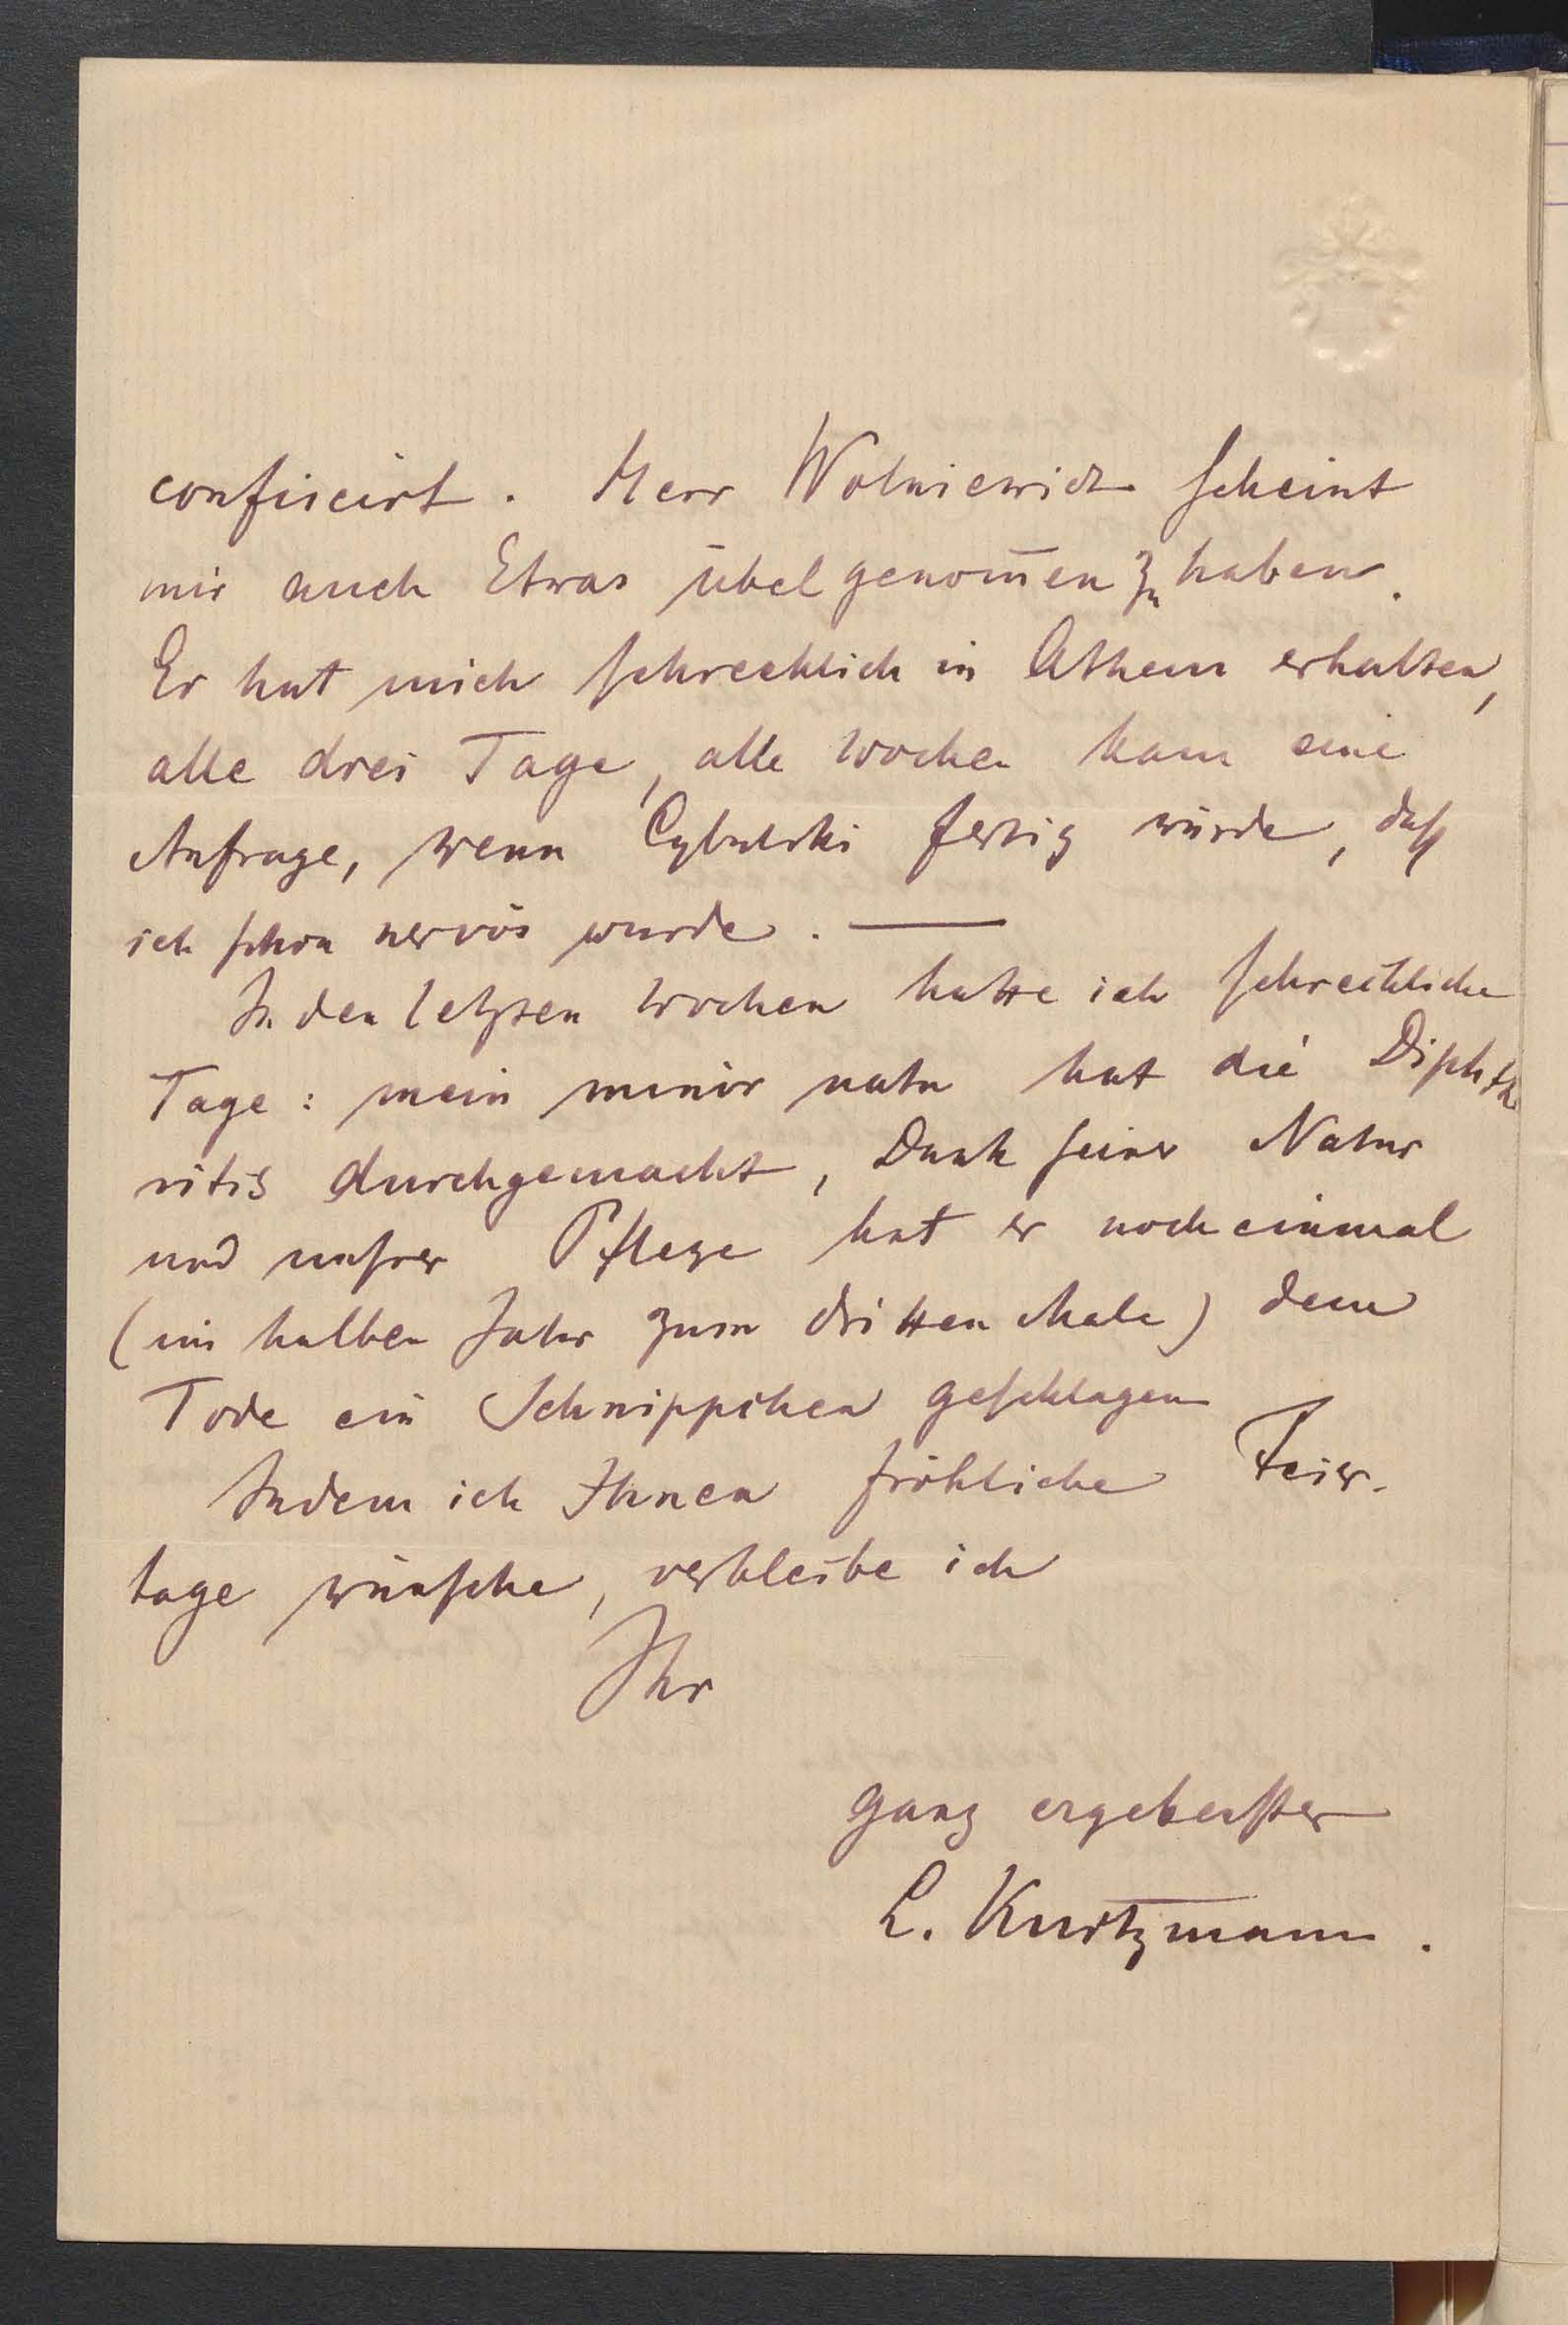 confiscirt. Herr Wolniewicz scheint
mir auch Etwas übel genom̄en zu haben.
Er hat mich schrecklich in Athem erhalten,
alle drei Tage, alle Wochen kam eine
Anfrage, wenn Cybulski fertig würde, daß
ich schon nervös wurde. —
In den letzten Wochen hatte ich schreckliche
Tage: mein minor natu hat die Diphthe
ritis durchgemacht, Dank seiner Natur
und unsrer Pflege hat er noch einmal
(im halben Jahr zum dritten Male) dem
Tode ein Schnippchen geschlagen
Indem ich Ihnen fröhliche Feier-
tage wünsche, verbleibe ich
Ihr
ganz ergebenster
L. Kurtzmann.